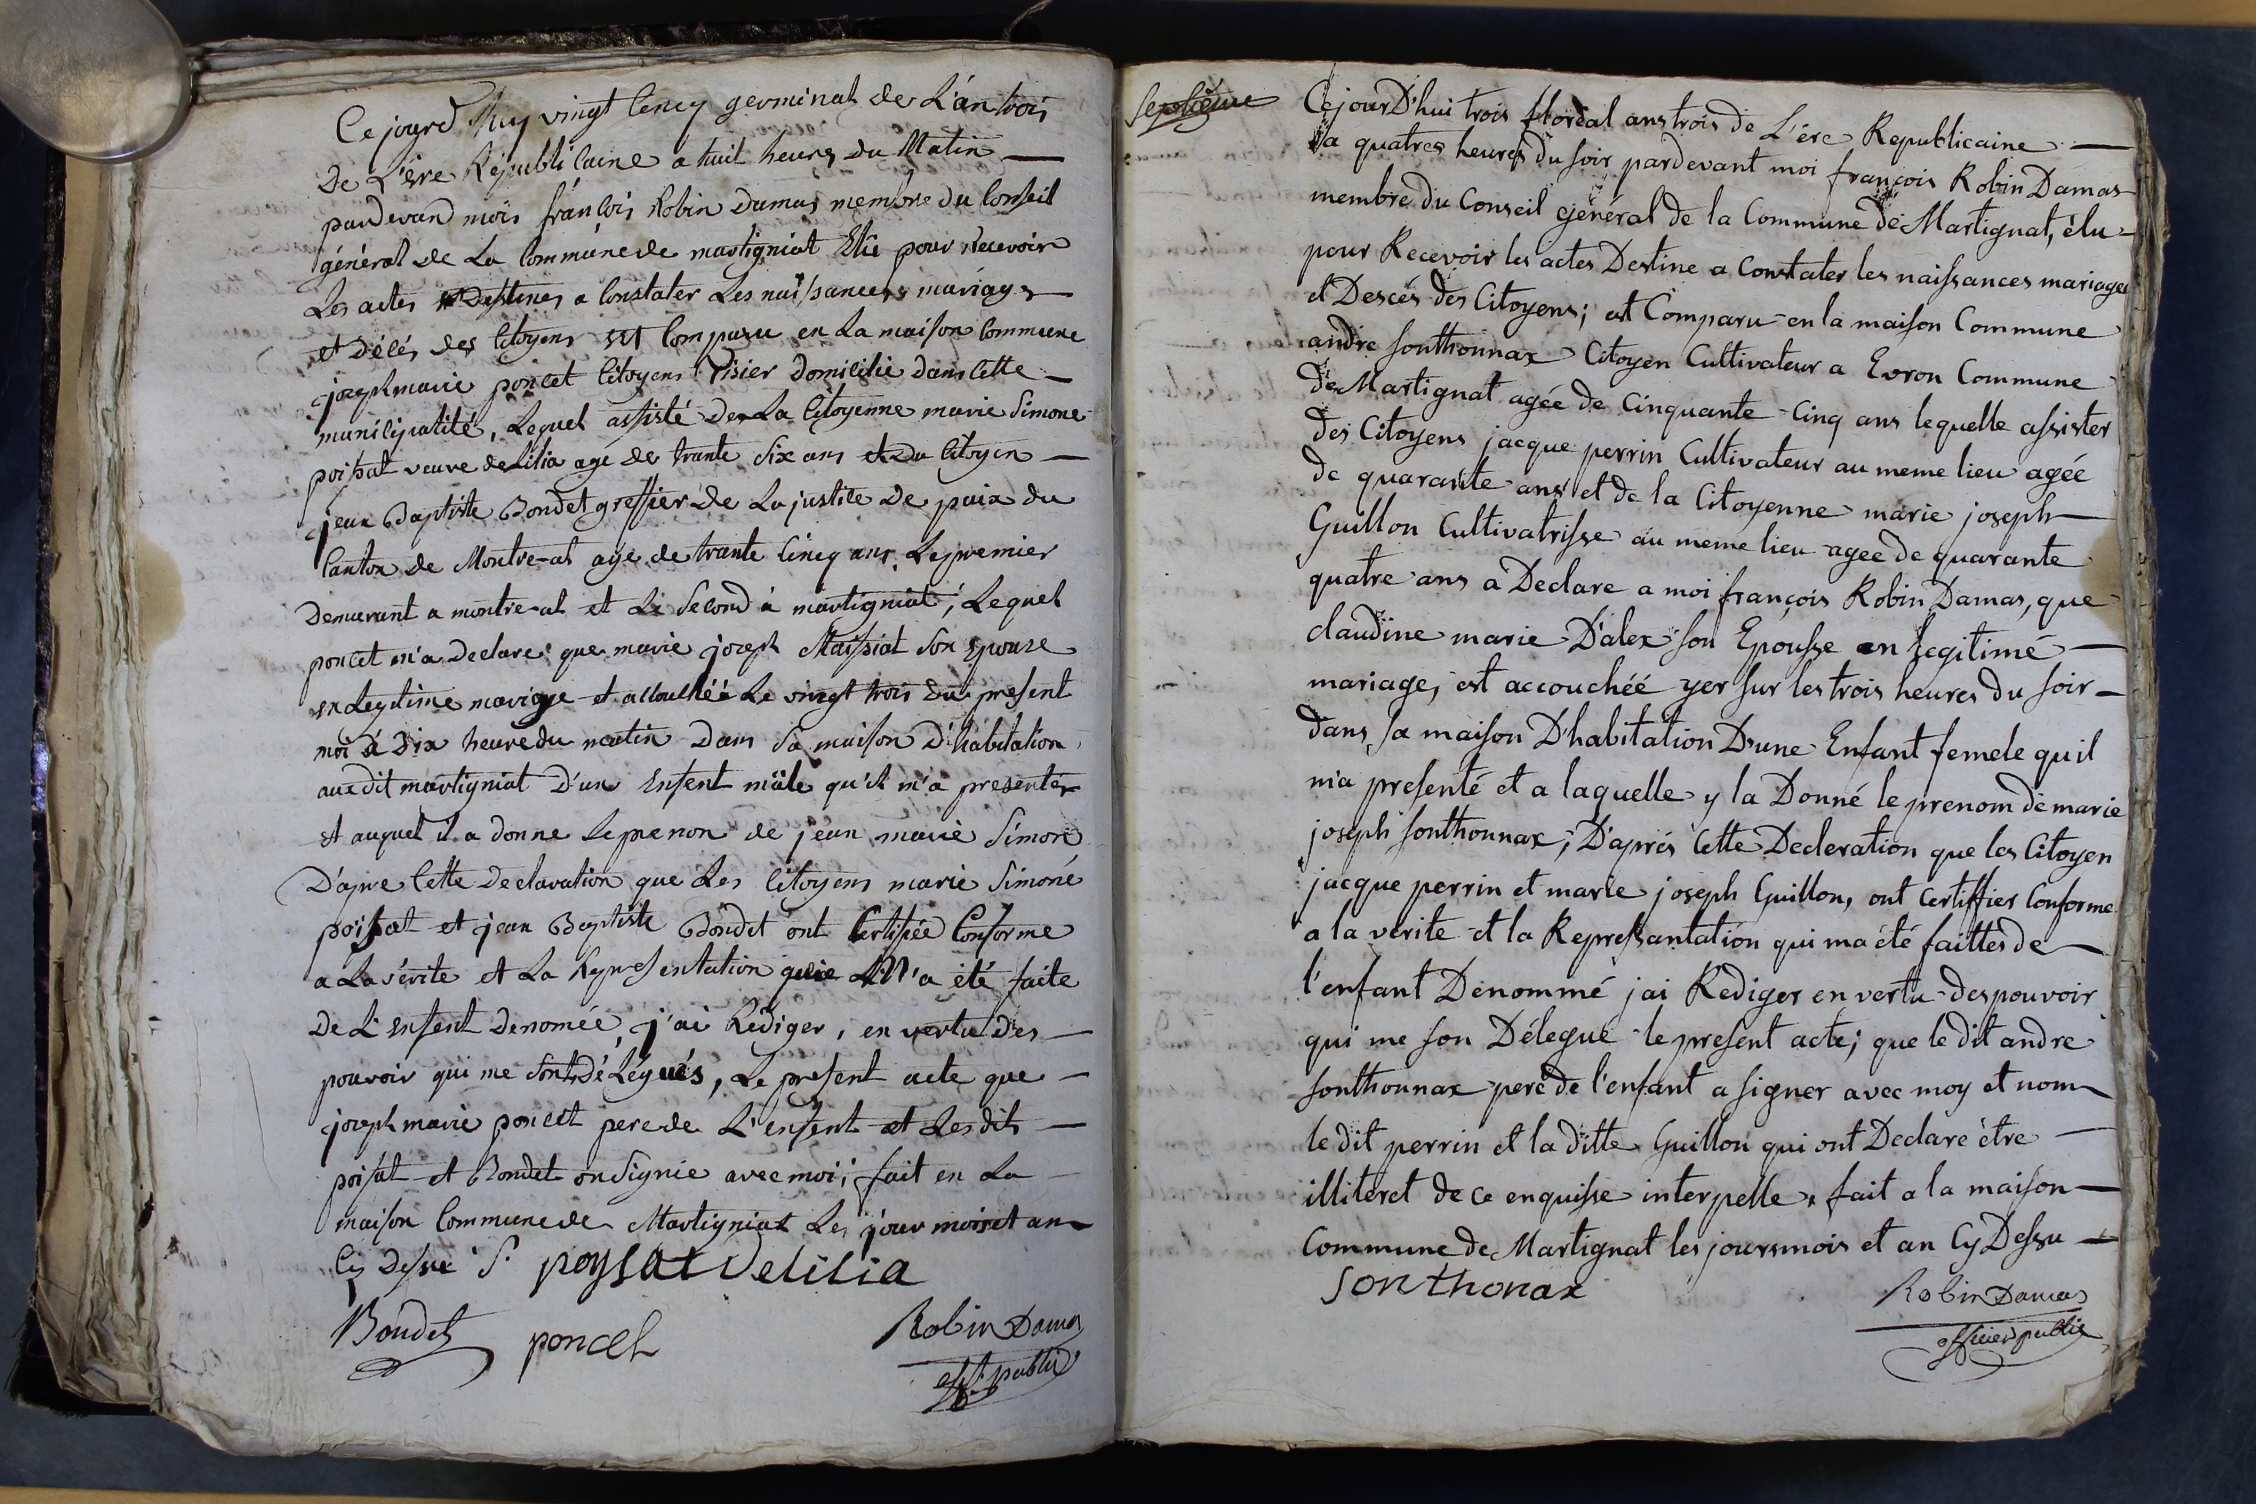 Ce jourd'huy vingt cincq germinal de L'an trois
De L'ére Républicaine a huit heures du Matin
pardevand mois françois Robin Damas membre du Conseil
général de La Commune de martigniat Elu pour recevoir
Les actes Destines a Constater Les naissances mariages
et décés des Citoyens est Comparu en La maison Commune
joseph marie poncet Citoyens domicilié dans Cette
municipalité, Lequel assisté De La Citoyenne marie Simone
poisat veuve delilia agé de trante six ans et du Citoyen
jean Baptiste Bondet greffier de La justice de paix du
Canton de Montre-al agé de trante Cincq ans. Le premier
Demeurant a montre-al et Le Second à martigniat, Lequel
poncet m'a Declare que marie joseph Maissiat son Epouse
en Legitime mariage et allouchéé Le vingt trois du present
moi à Dix heure du matin Dans sa maison D'habitation
au dit martigniat D'un Enfent mäle qu'il m'a presenter
et auquel il a donne Le prenon de jean marie Simon
D'apre Cette declaration que Les Citoyens marie Simone
poisat et jean Baptiste Bondet ont Certifiée Conforme
a La vérite et La Représentation quie M'a été faite
De L'enfent denomée, j'ai Rédiger, en vertu des
pouvoir qui me sont déLégués, Le present acte que
joseph marie poncet pere de L'enfent et Les dits
poisat et Bondet on Signie avec moi; fait en La
maison Commune de Martigniat Les jour mois et an
Cy Desue S. poysat velilia
Bondet poncet Robin Damas
off. public
Septiême
Cejour D'hui trois floréal ans trois de L'ére Republicaine
a quatres heures du soir pardevant moi françois Robin Damas
membre du Conseil général de la Commune de Martignat, élu
pour Recevoir les actes Destine a Constater les naissances mariages
et Descés des Citoyens; est Comparu en la maison Commune
andre sonthonnax Citoyen Cultivateur a Evron Commune
de Martignat agée de Cinquante-Cinq ans lequelle assister
des Citoyens jacque perrin Cultivateur au meme lieu agée
de quarante ans et de la Citoyenne marie joseph
Guillon Cultivatrisse au meme lieu agee de quarante
quatre ans a Declare a moi françois Robin Damas, que
claudine marie D'alex son Epousse en Legitimé
mariage, est accouchéé yer sur les trois heures du soir
dans sa maison D'habitation D'une Enfant femele quil
m'a presenté et a laquelle y la Donné le prenom de marie
joseph sonthonnax; D'aprés Cette Decleration que les Citoyen
jacque perrin et marie joseph Guillon, ont Certiffier Conforme
a la verite et la Represantation qui ma été faittes de
l'enfant Denommé jai Rediger en vertu des pouvoir
qui me son Délegue le present acte; que le dit andre
sonthonnax pere de l'enfant a signer avec moy et nom
le dit perrin et la ditte Guillon qui ont Declare être
illiteret de ce enquisse interpelle. fait a la maison
Commune de Martignat les jours mois et an Cy Dessu
Sonthonax
Robin Damas
officier public